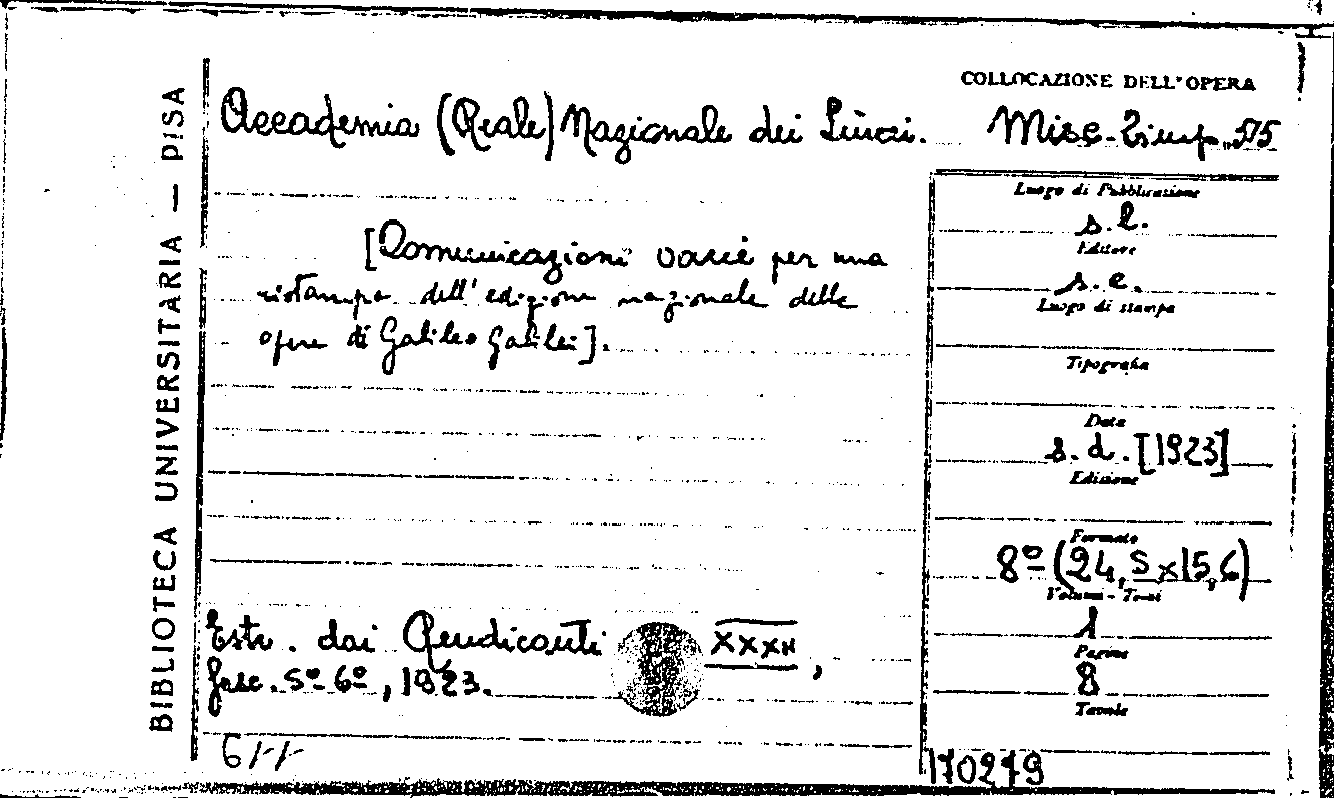 COLLOCAZIONE DELL'OPERA
Accademia (Reale) Nazionale dei Lincei. Misc. 575
BIBLIOTECA UNIVERSITARIA — PISA
Luogo di Pubblicazione
s.l.
Editore
s.e.
Luogo di stampa
Tipografia
Data
s.d. [1923]
Edizione
Formato
8º (24,5x15,6)
Volumi - Tomi
1
Pagine
8
Tavole
[Comunicazioni varie per una
ristampa dell'edizione nazionale delle
opere di Galileo Galilei].
Estr. dai Rendiconti XXXII,
fasc. 5º-6º, 1923.
170279